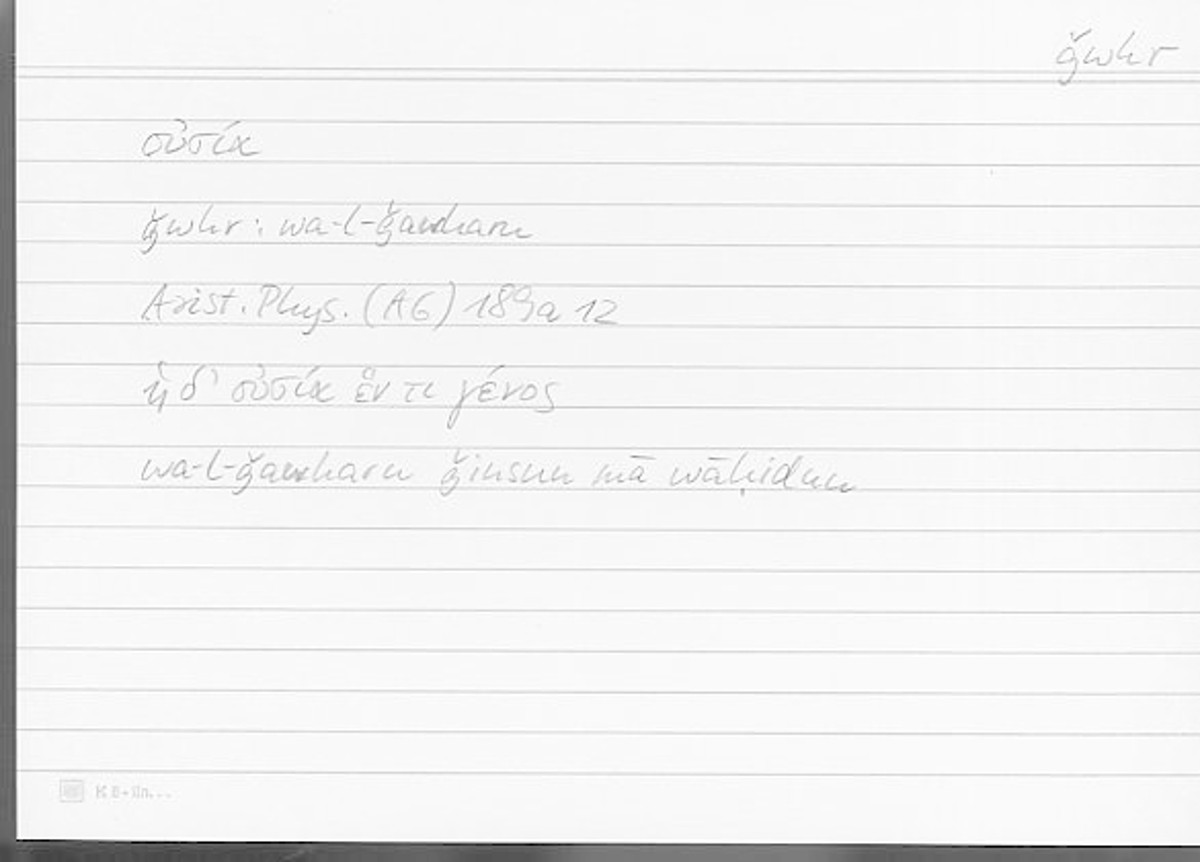 ǧwhr
οὐσία
ǧwhr: wa-l-ǧawharu
Arist. Phys. (A6) 189a 12
ἡ δ' οὐσία ἕν τι γένος
wa-l-ǧawharu ǧinsun mā wāḥidun